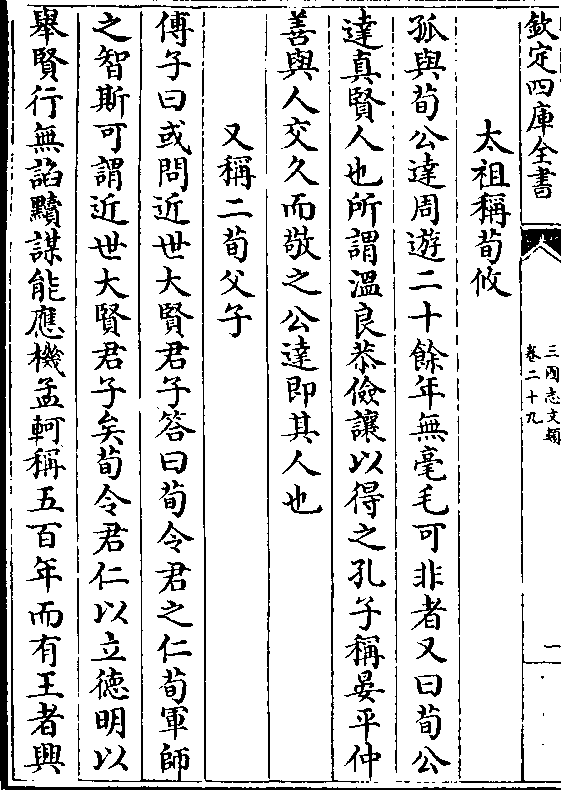 欽定四庫全書
三國志文類
卷二十九
一
太祖稱荀攸
孤與荀公達周遊二十餘年無毫毛可非者又曰荀公
達真賢人也所謂溫良恭儉讓以得之孔子稱晏平仲
善與人交久而敬之公達即其人也
又稱二荀父子
傅子曰或問近世大賢君子答曰荀令君之仁荀軍師
之智斯可謂近世大賢君子矣荀令君仁以立德明以
舉賢行無諂黷謀能應機孟軻稱五百年而有王者興